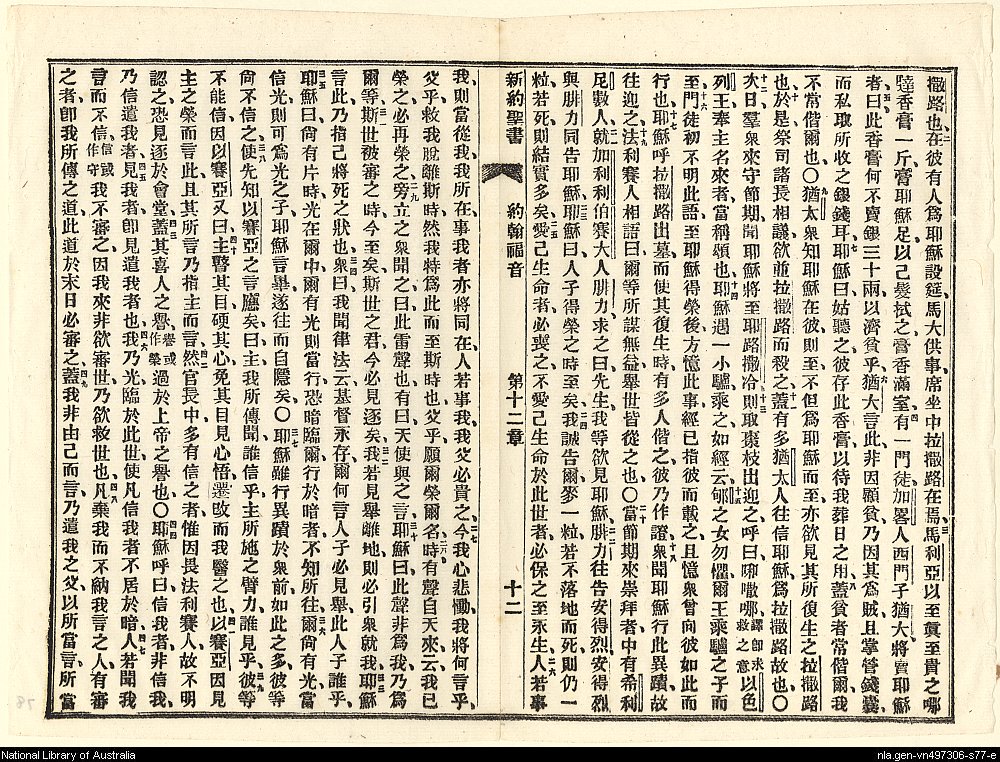 撒路也在彼有人爲耶穌設筵馬大供事席坐中拉撒路在焉馬利亞以至眞至貴之哪
噠香膏一斤膏耶穌足以己髮拭之膏香滿室有一門徒加畧人西門子猶大將賣耶穌
者曰此香膏何不賣銀三十兩以濟貧乎猶大言此非因顧貧乃因其爲賊且掌管錢囊
而私取所收之銀錢耳耶穌曰姑聽之彼存此香膏以待我葬日之用蓋貧者常偕爾我
不常偕爾也〇猶太衆知耶穌在彼則至不但爲耶穌而至亦欲見其所復生之拉撒路
也於是祭司諸長相議欲並拉撒路而殺之蓋有多猶太人往信耶穌爲拉撒路故也〇
次日羣衆來守節期聞耶穌將至耶路撒冷則取棗枝出迎之呼曰哪譯即求救之意以色
列王奉主名來者當稱頌也耶穌遇一小驢乘之如經云郇之女勿懼爾王乘驢之子而
至門徒初不明此語至耶穌得榮後方憶此事經已指彼而載之且憶衆曾向彼如此而
行也耶穌呼拉撒路出墓而使其復生時有多人偕之彼乃作證衆聞耶穌行此異蹟故
往迎之法利賽人相語曰爾等所謀無益舉世皆從之也〇當節期來崇拜者中有希利
足數人就加利利伯賽大人腓力求之曰先生我等欲見耶穌腓力往告安得烈安得烈
與腓力同告耶穌耶穌曰人子得榮之時至矣我誠告爾麥一粒若不落地而死則仍一
粒若死則結實多矣愛己生命者必喪之不愛己生命於此世者必保之至永生人若事
新約聖書 約翰福音 第十二章 十二
我則當從我我所在事我者亦將同在人若事我我父必貴之今我心悲慟我將何言乎
父乎救我脫離斯時然我特爲此而至斯時也父乎願爾榮爾名時有聲自天來云我已
榮之必再榮之旁立之衆聞之曰此雷聲也有曰天使與之言耶穌曰此聲非爲我乃爲
爾等斯世被審之時今至矣斯世之君今必見逐矣我若見舉離地則必引衆就我耶穌
言此乃指己將死之狀也衆曰我聞律法云基督永存爾何言人子必見舉此人子誰乎
耶穌曰尙有片時光在爾中爾有光則當行恐暗臨爾行於暗者不知所往爾尙有光當
信光則可爲光之子耶穌言畢遂往而自隱矣〇耶穌雖行異蹟於衆前如此之多彼等
尙不信之使先知以賽亞之言應矣曰主我所傳聞誰信乎主所施之臂力誰見乎彼等
不能信因以賽亞又曰主瞽其目硬其心免其目見心悟遷改而我醫之也以賽亞因見
主之榮而言此且其所言乃指主而言然官長中多有信之者惟因畏法利賽人故不明
認之恐見逐於會堂蓋其喜人之譽譽或作榮過於上帝之譽也〇耶穌呼曰信我者非信我
乃信遣我者見我者卽見遣我者也我乃光臨於此世使凡信我者不居於暗人若聞我
言而不信信或作守我不審之因我來非欲審世乃欲救世也凡棄我而不納我言之人有審
之者卽我所傳之道此道於末日必審之蓋我非由己而言乃遣我之父以所當言所當
National Library of Australia
nla.gen-vn497306-s77-e